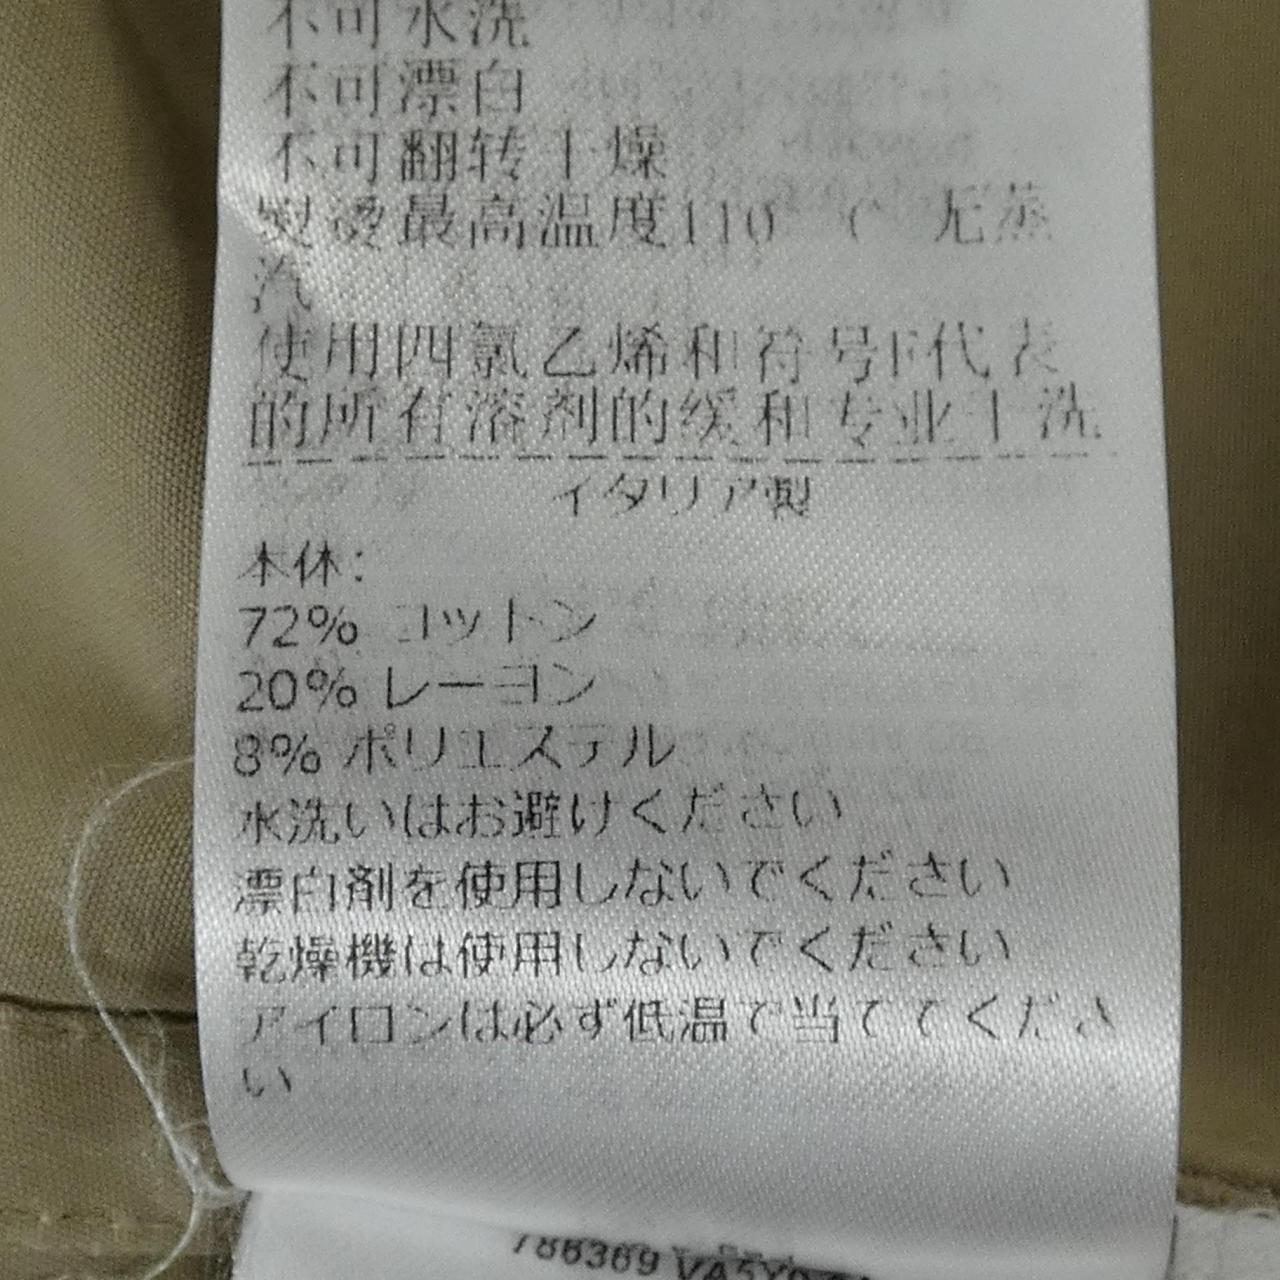 不可水洗
不可漂白
不可翻转干燥
熨烫最高温度110 C 无蒸
汽
使用四氯乙烯和符号F代表
的所有溶剂的缓和专业干洗
イタリア製
本体:
72% コットン
20% レーヨン
8% ポリエステル
水洗いはお避けください
漂白剤を使用しないでください
乾燥機は使用しないでください
アイロンは必ず低温で当ててくださ
い
786369